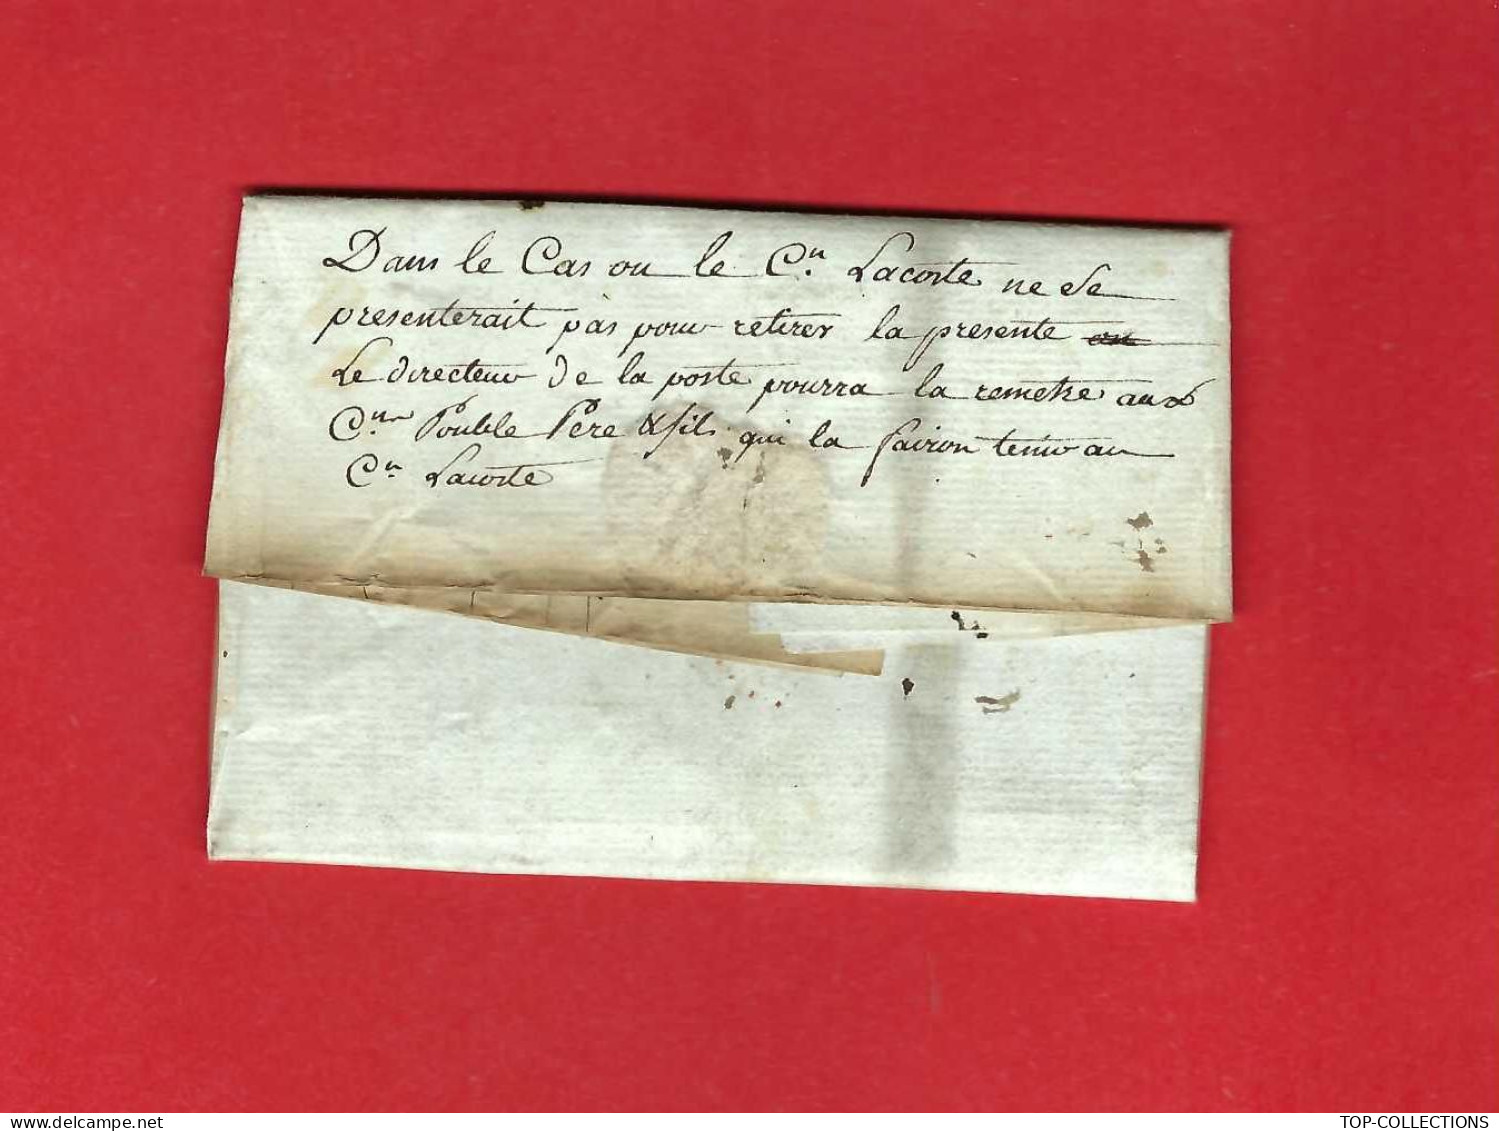 Dans le Cas ou le C.n Lacoste ne se
presenterait pas pour retirer la presente
Le directeur de la poste pourra la remetre aux
C.ns Pouble Pere & fils qui la fairon tenir au
C.n Lacoste
TOP-COLLECTIONS